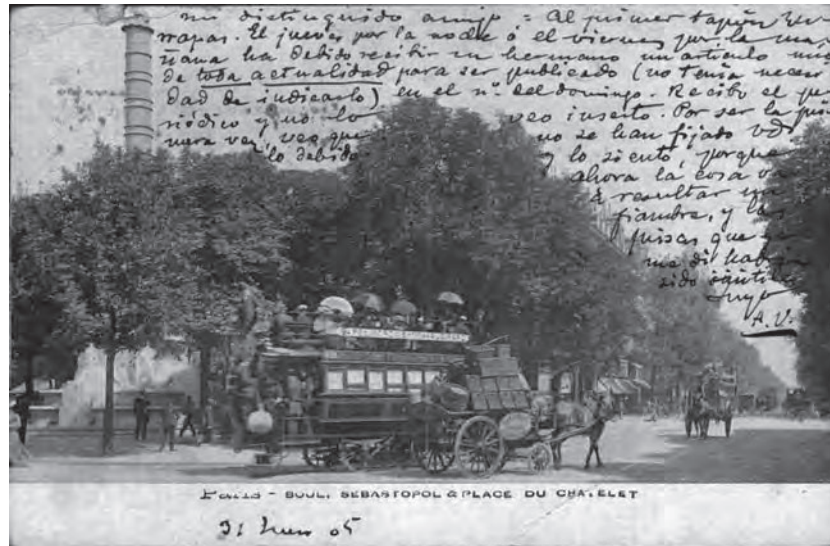 mi distinguido amigo = Al primer tapón zu-
rrapas. El jueves por la noche ó el viernes por la ma-
ñana ha debido recibir su hermano un artículo mío
de toda actualidad para ser publicado (no tenía necesi-
dad de indicarlo) en el nº del domingo. Recibo el pe-
riódico y no lo veo inserto. Por ser la pri-
mera vez, veo que no se han fijado vds
lo debido y lo siento, porque
ahora la cosa va
á resultar un
fiambre, y las
prisas que yo
me di habrán
sido inútiles
Suyo
A. V.
Paris - BOUL. SEBASTOPOL & PLACE DU CHATELET
31 05